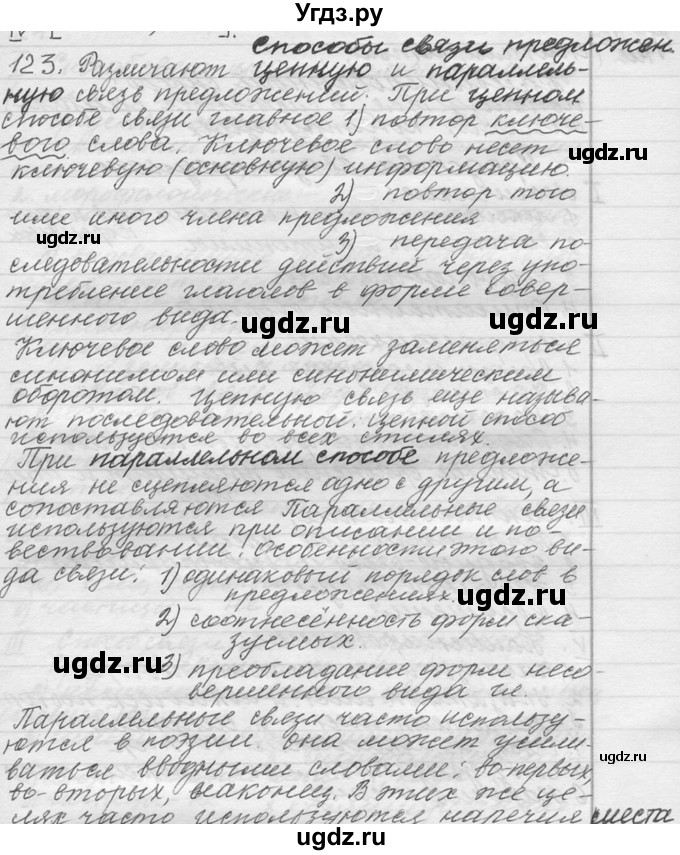 Угдз.ру
Способы связи предложен.
123. Различают цепную и параллель-
ную связь предложений. При цепном
способе связи главное 1) повтор ключе-
вого слова. Ключевое слово несет
ключевую (основную) информацию.
2) повтор того
или иного члена предложения
ugdz.ru ugdz.ru
3) передача по-
следовательности действий через упо-
требление глаголов в форме совер-
шенного вида.
ugdz.ru ugdz.ru
Ключевое слово может заменяться
синонимом или синонимическим
оборотом. Цепную связь еще называ-
ют последовательной. Цепной способ
используется во всех стилях.
При параллельном способе предложе-
ния не сцепляются одно с другим, а
сопоставляются Параллельные связи
используются при описании и по-
вествовании! Особенности этого ви-
да связи: 1) одинаковый порядок слов в
предложениях.
ugdz.ru
2) соотнесённость форм ска-
зуемых.
ugdz.ru
3) преобладание форм несо-
вершенного вида гл.
Параллельные связи часто использу-
ются в поэзии. она может усили-
ugdz.ru
ваться вводными словами: во-первых,
во-вторых, наконец. В этих же це-
лях часто используются наречия места
ugdz.ru